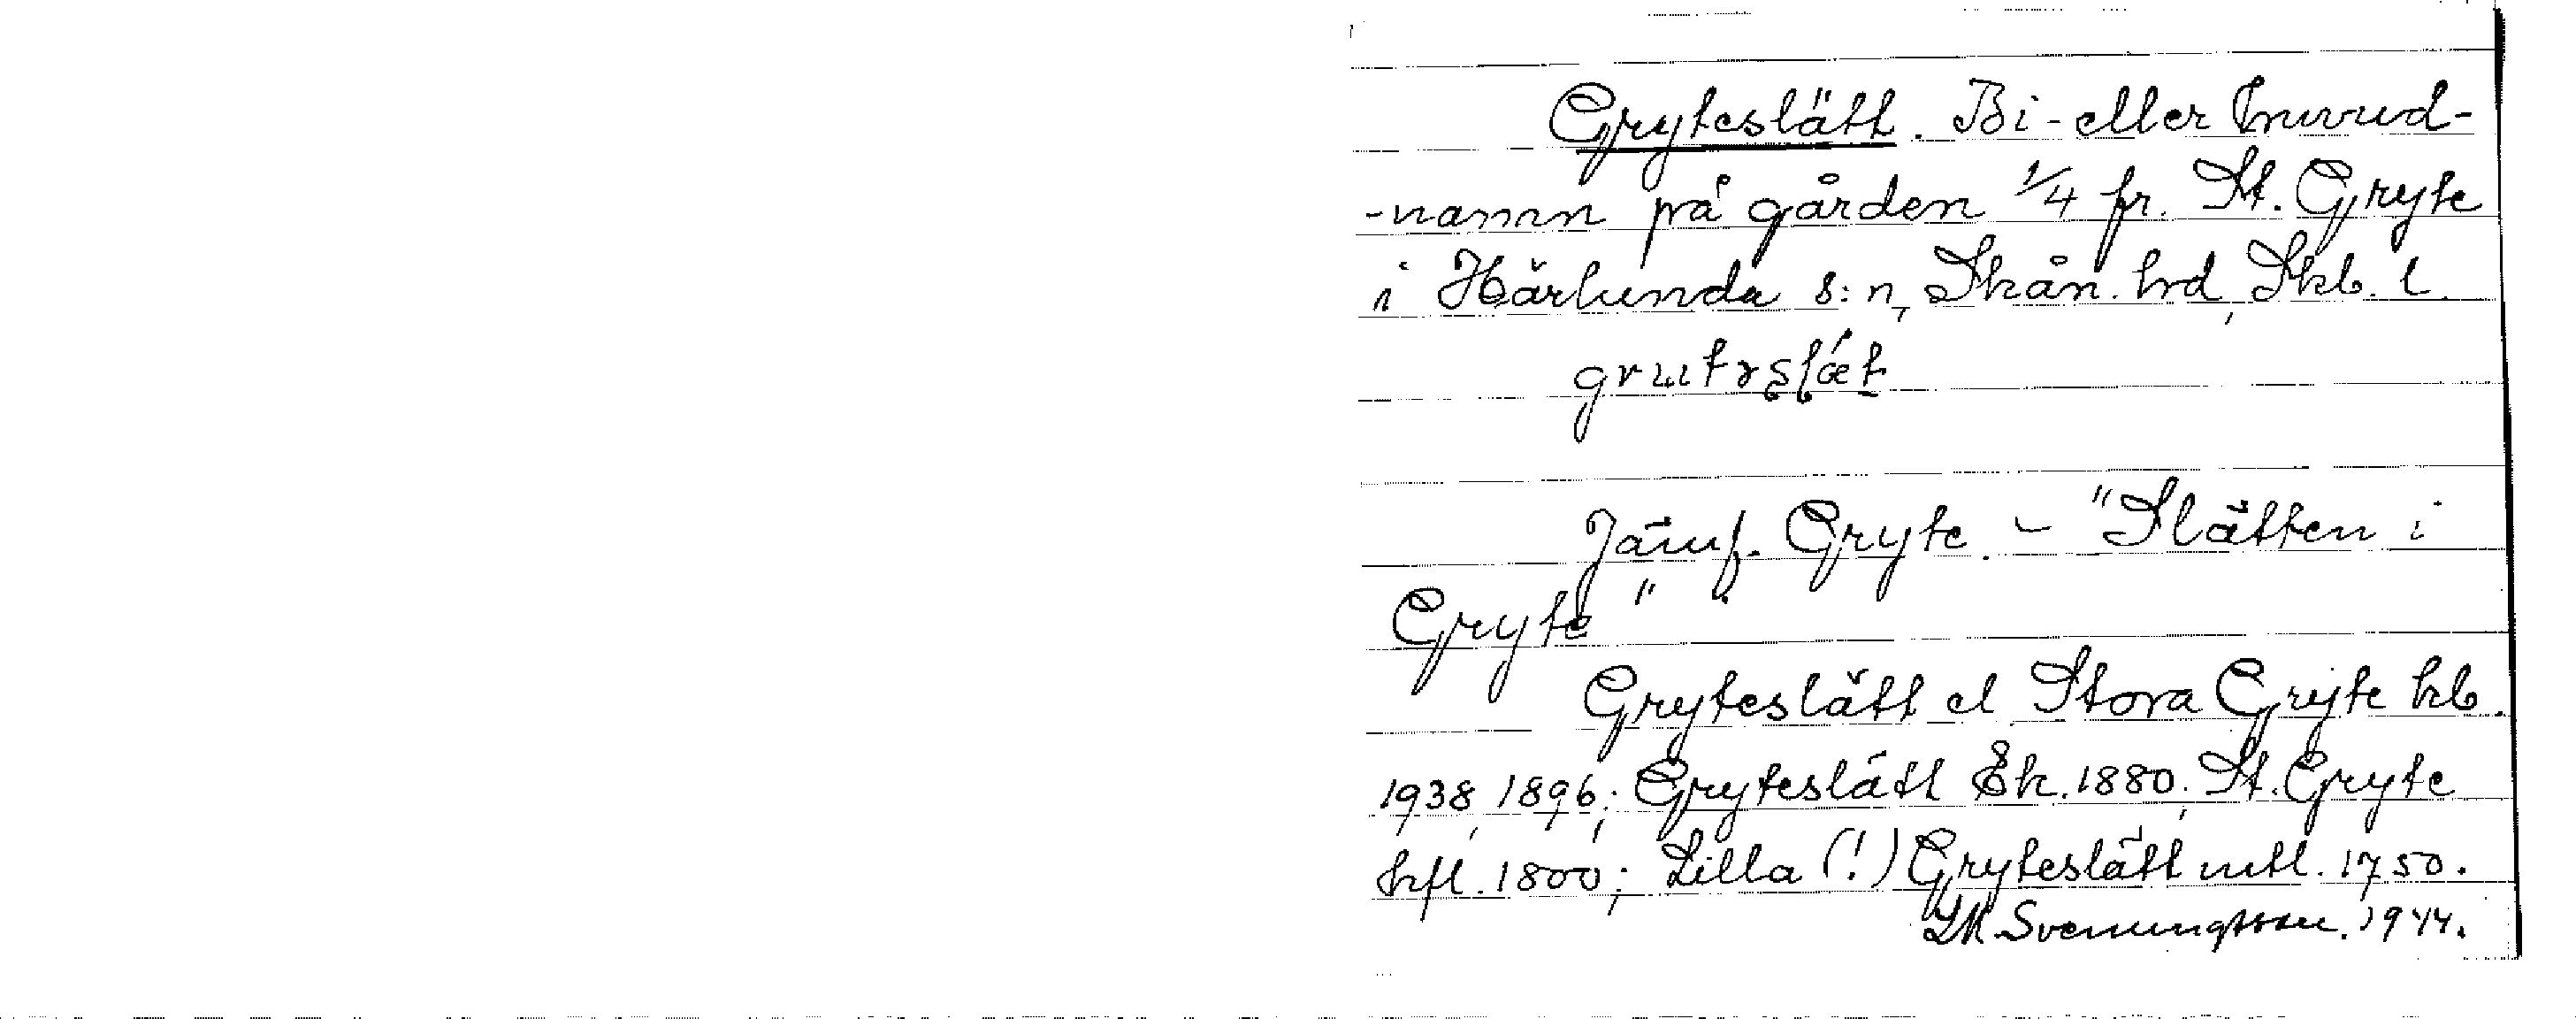 Gryteslätt. Bi- eller huvud-
-namn på gården 1/4 fr. St. Gryte
i Härlunda s:n, Skån. hd, Skb. l.
Jämf. Gryte. – "Slätten i
Gryte".
Gryteslätt el Stora Gryte kb.
1938, 1896; Gryteslätt Ek. 1880; St. Gryte
hfl. 1800; Lilla (!) Gryteslätt mtl. 1750.
Svenungsson. 1944.